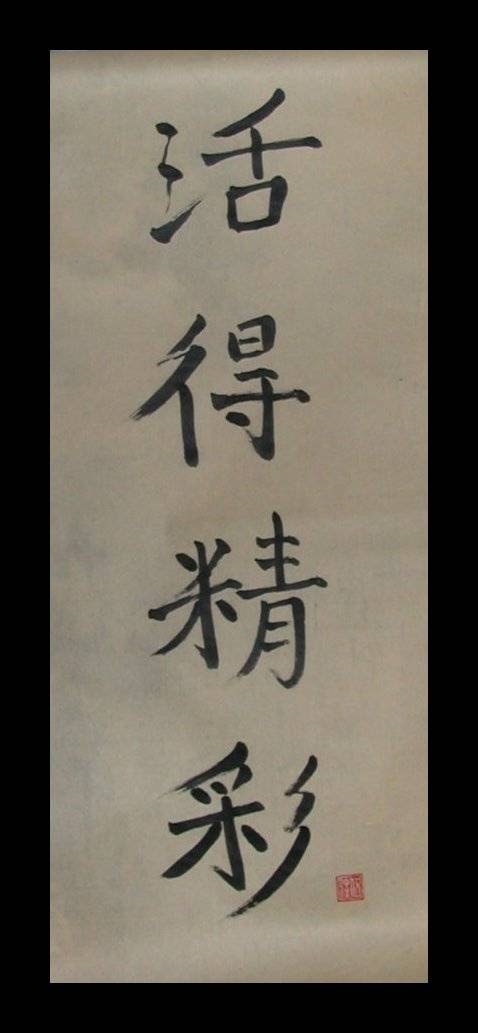 活得精彩